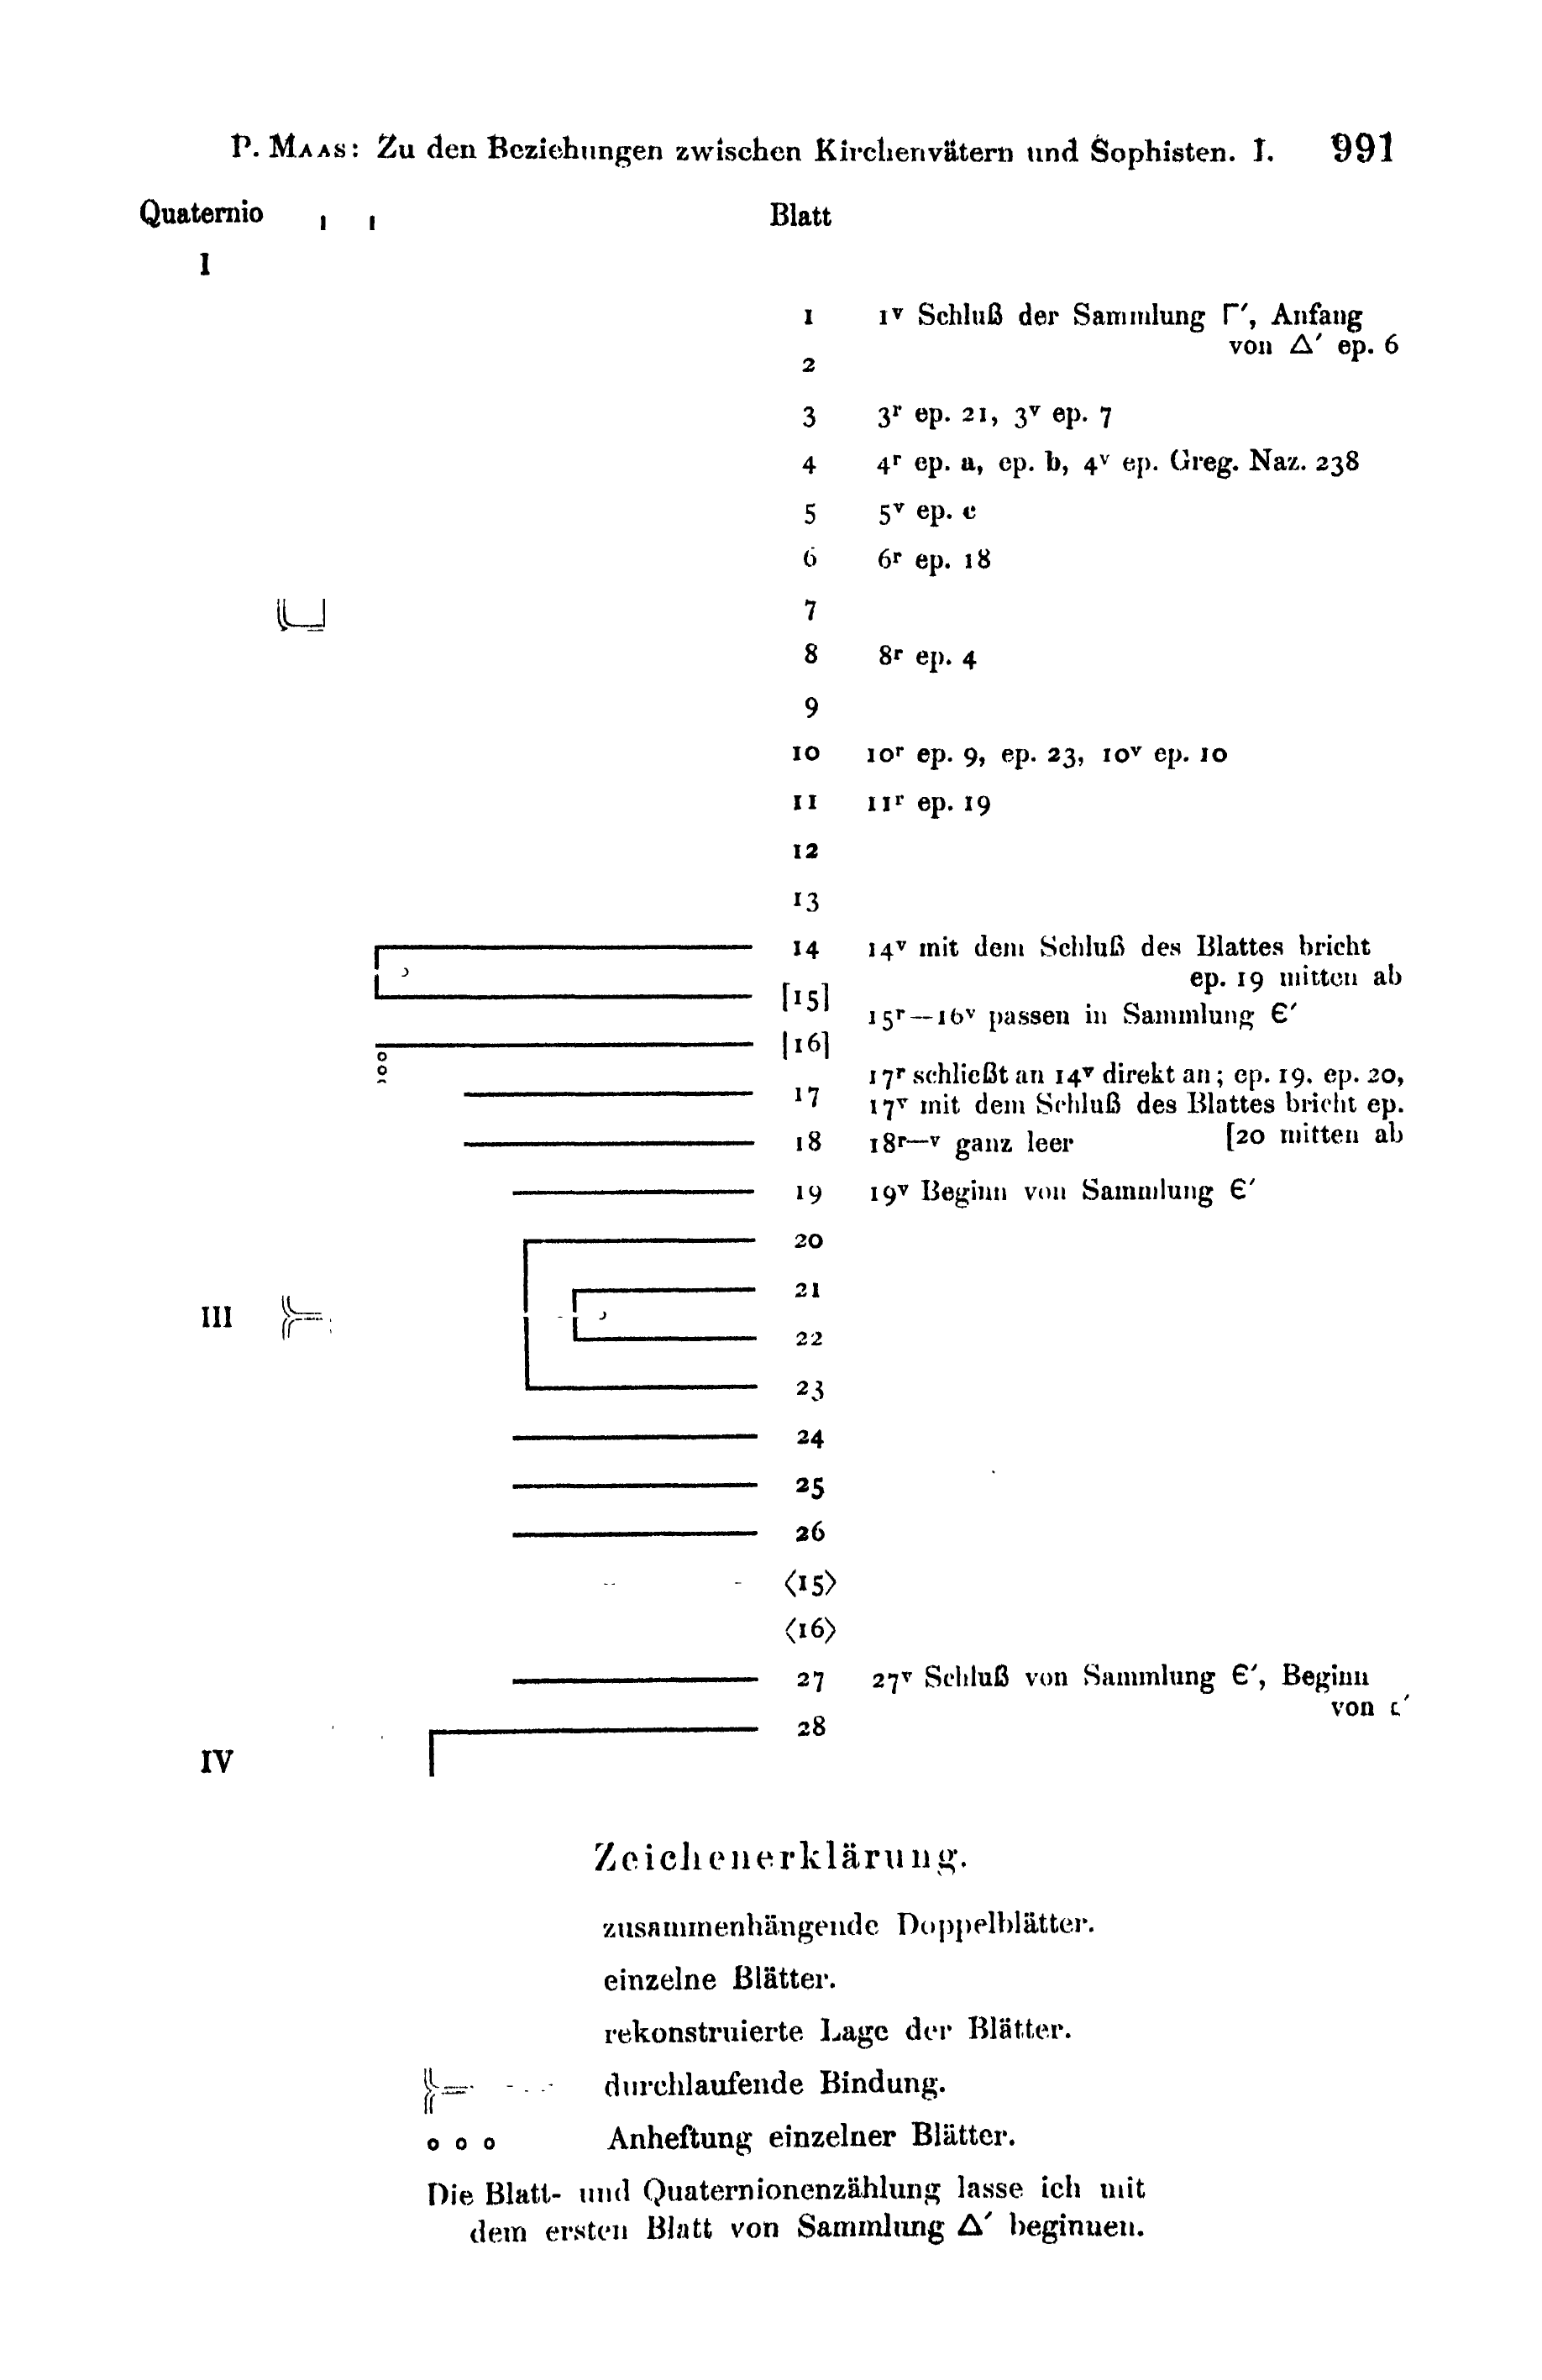 P. MAAS: Zu den Beziehungen zwischen Kirchenvätern und Sophisten. I. 991
Quaternio Blatt
I
1 1ᵛ Schluß der Sammlung Γ′, Anfang
von Δ′ ep. 6
2
3 3ʳ ep. 21, 3ᵛ ep. 7
4 4ʳ ep. a, ep. b, 4ᵛ ep. Greg. Naz. 238
5 5ᵛ ep. c
6 6ʳ ep. 18
7
8 8ʳ ep. 4
9
10 10ʳ ep. 9, ep. 23, 10ᵛ ep. 10
11 11ʳ ep. 19
12
13
14 14ᵛ mit dem Schluß des Blattes bricht
ep. 19 mitten ab
[15]
15ʳ—16ᵛ passen in Sammlung Є′
[16]
17 17ʳ schließt an 14ᵛ direkt an; ep. 19. ep. 20,
17ᵛ mit dem Schluß des Blattes bricht ep.
18 18ʳ—ᵛ ganz leer [20 mitten ab
19 19ᵛ Beginn von Sammlung Є′
20
21
III
22
23
24
25
26
⟨15⟩
⟨16⟩
27 27ᵛ Schluß von Sammlung Є′, Beginn
von ʗ′
28
IV
Zeichenerklärung.
zusammenhängende Doppelblätter.
einzelne Blätter.
rekonstruierte Lage der Blätter.
durchlaufende Bindung.
o o o Anheftung einzelner Blätter.
Die Blatt- und Quaternionenzählung lasse ich mit
dem ersten Blatt von Sammlung Δ′ beginnen.